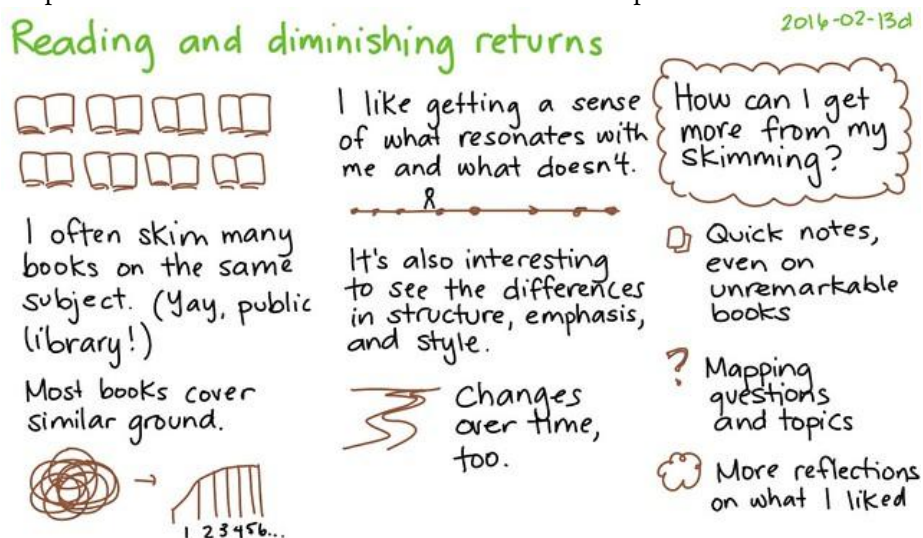 2016-02-13d
Reading and diminishing returns
I often skim many
books on the same
subject. (Yay, public
library!)
Most books cover
similar ground.
1 2 3 4 5 6...
I like getting a sense
of what resonates with
me and what doesn't.
It's also interesting
to see the differences
in structure, emphasis,
and style.
Changes
over time,
too.
How can I get
more from my
skimming?
Quick notes,
even on
unremarkable
books
?
Mapping
questions
and topics
More reflections
on what I liked